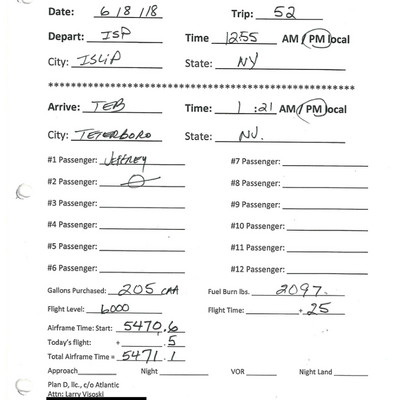 Date: 6/8/18 Trip: 52
Depart: ISP Time 12:55 AM / PM local
City: ISLIP State: NY
********************************************
Arrive: TEB Time: 1:21 AM / PM local
City: TETERBORO State: NJ.
#1 Passenger: JEFFREY #7 Passenger:
#2 Passenger: #8 Passenger:
#3 Passenger: #9 Passenger:
#4 Passenger: #10 Passenger:
#5 Passenger: #11 Passenger:
#6 Passenger: #12 Passenger:
Gallons Purchased: 205 CAA Fuel Burn lbs. 2097.
Flight Level: 6000 Flight Time: + 25
Airframe Time: Start: 5470.6
Today's flight: + .5
Total Airframe Time = 5471.1
Approach Night VOR Night Land
Plan D, llc., c/o Atlantic
Attn: Larry Visoski